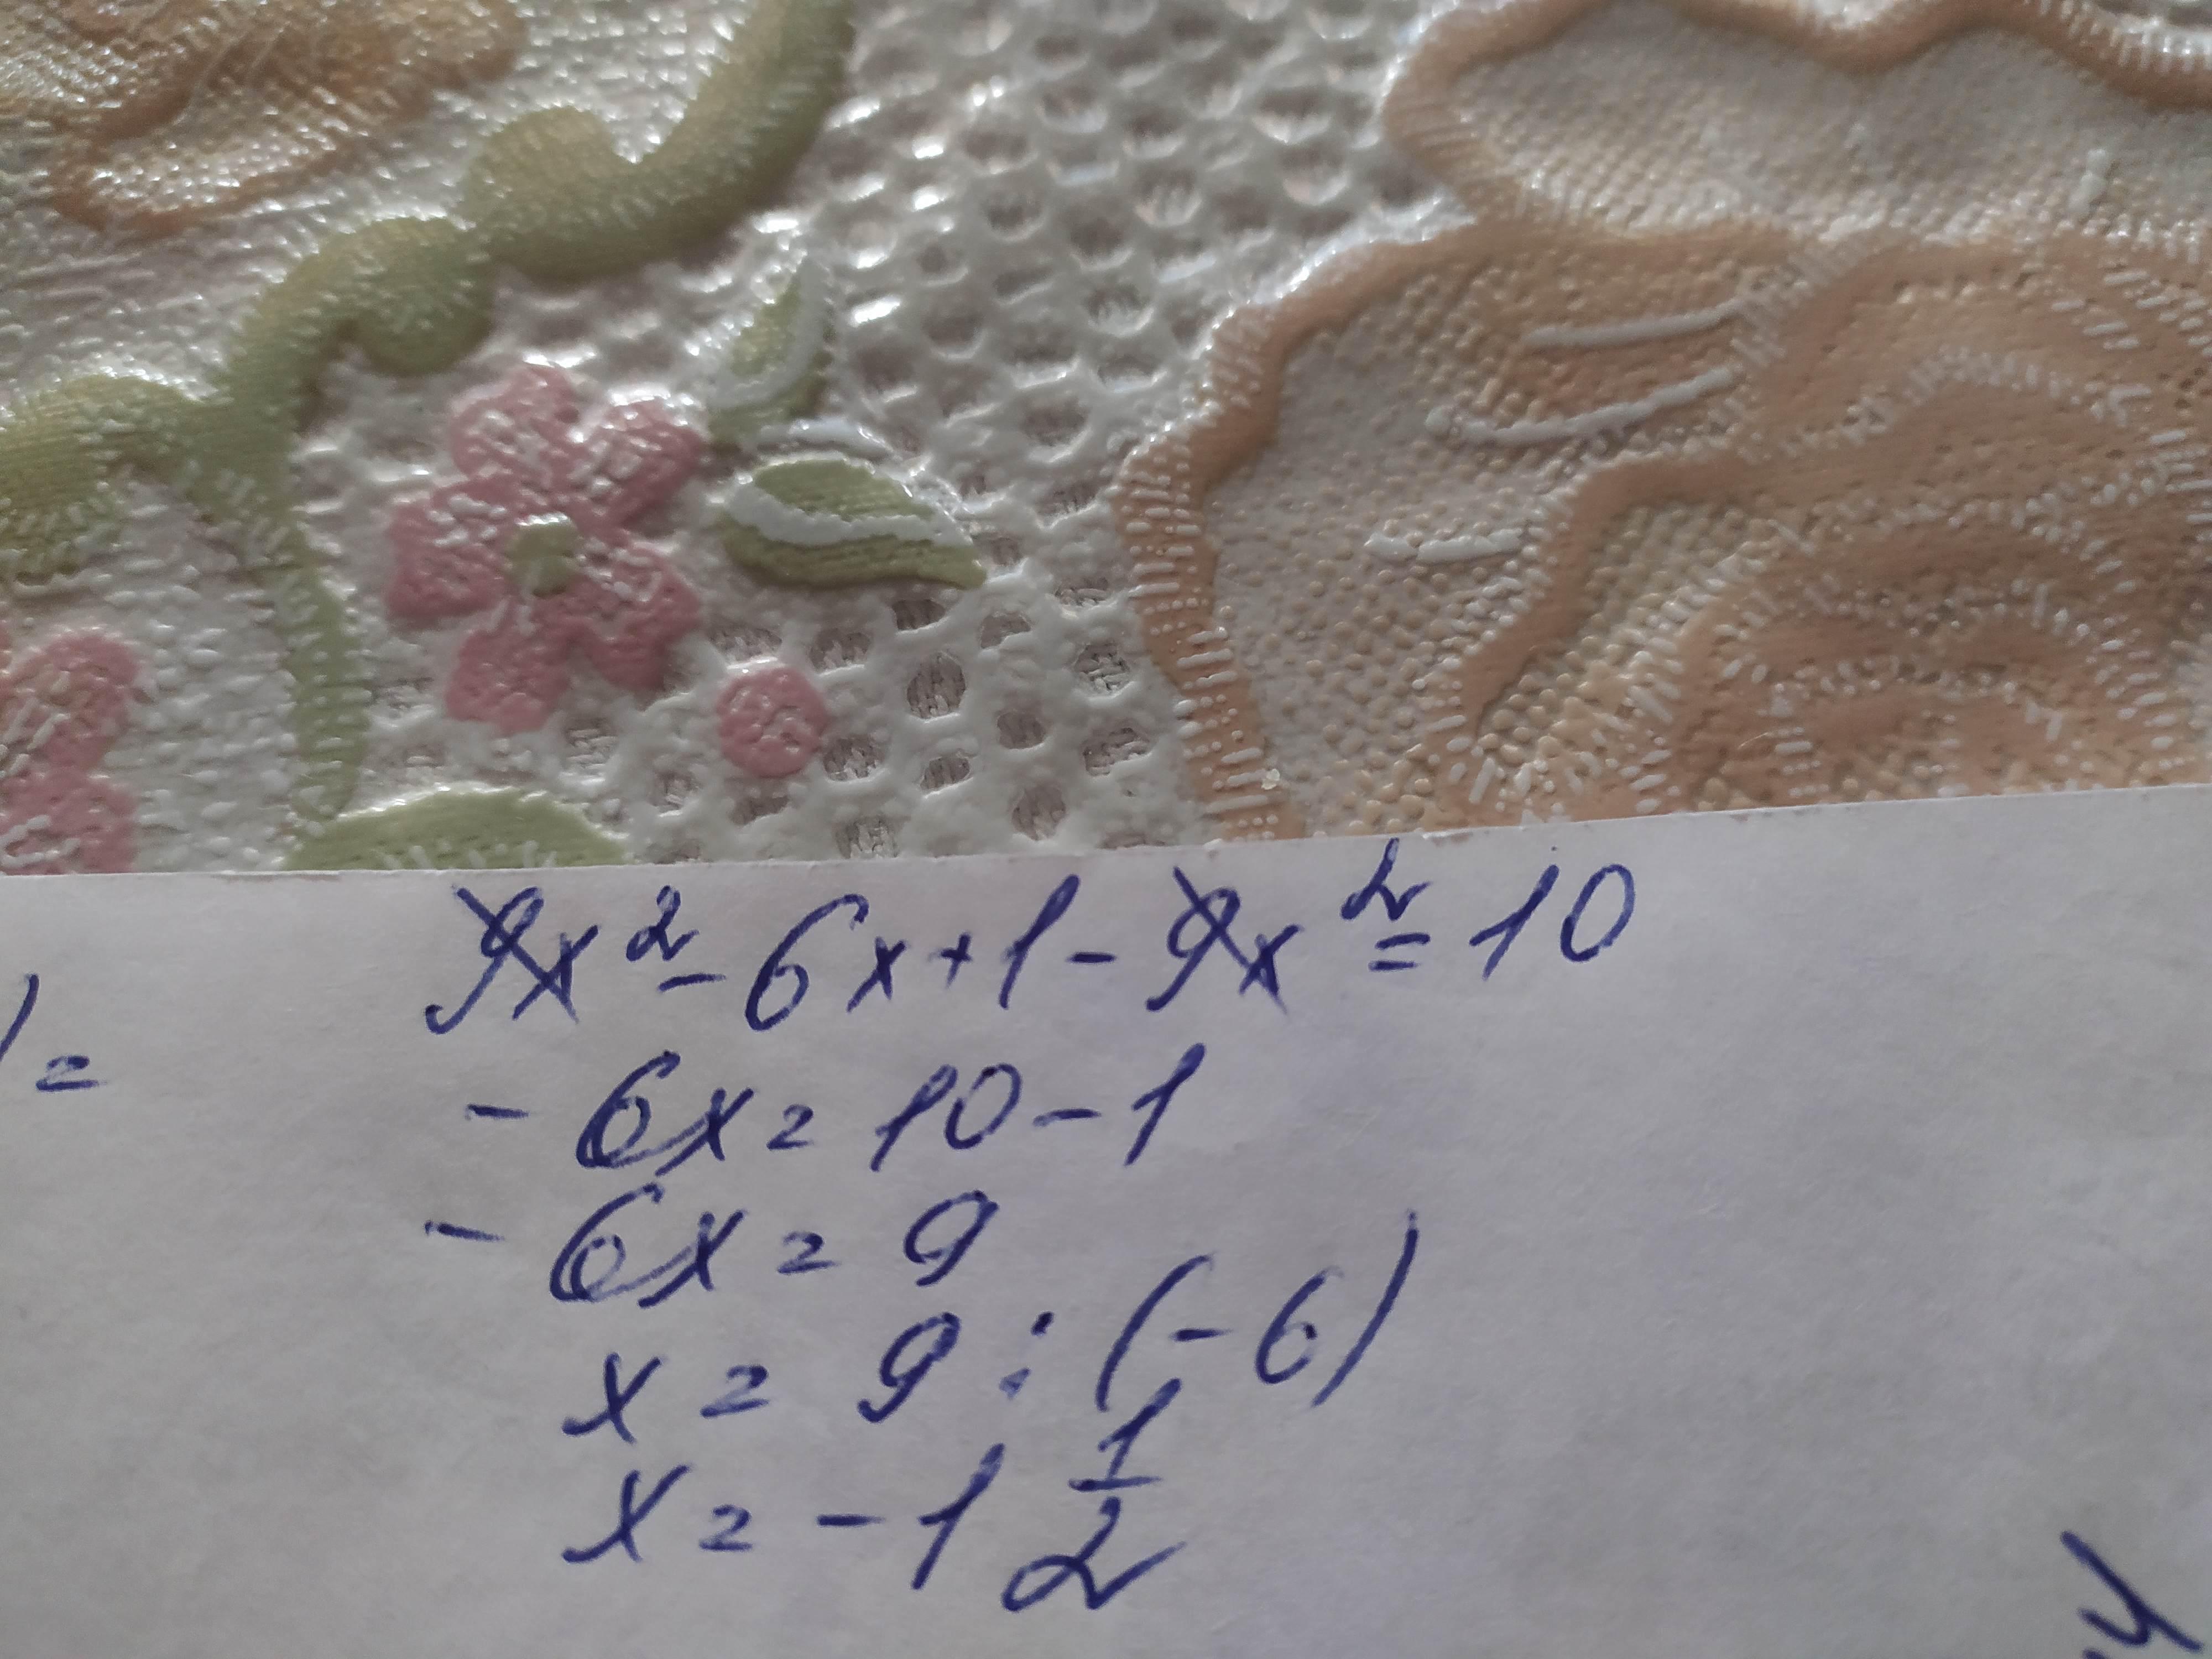 9x² - 6x + 1 - 9x² = 10
) =
- 6x = 10 - 1
- 6x = 9
x = 9 : (-6)
x = -1 1/2